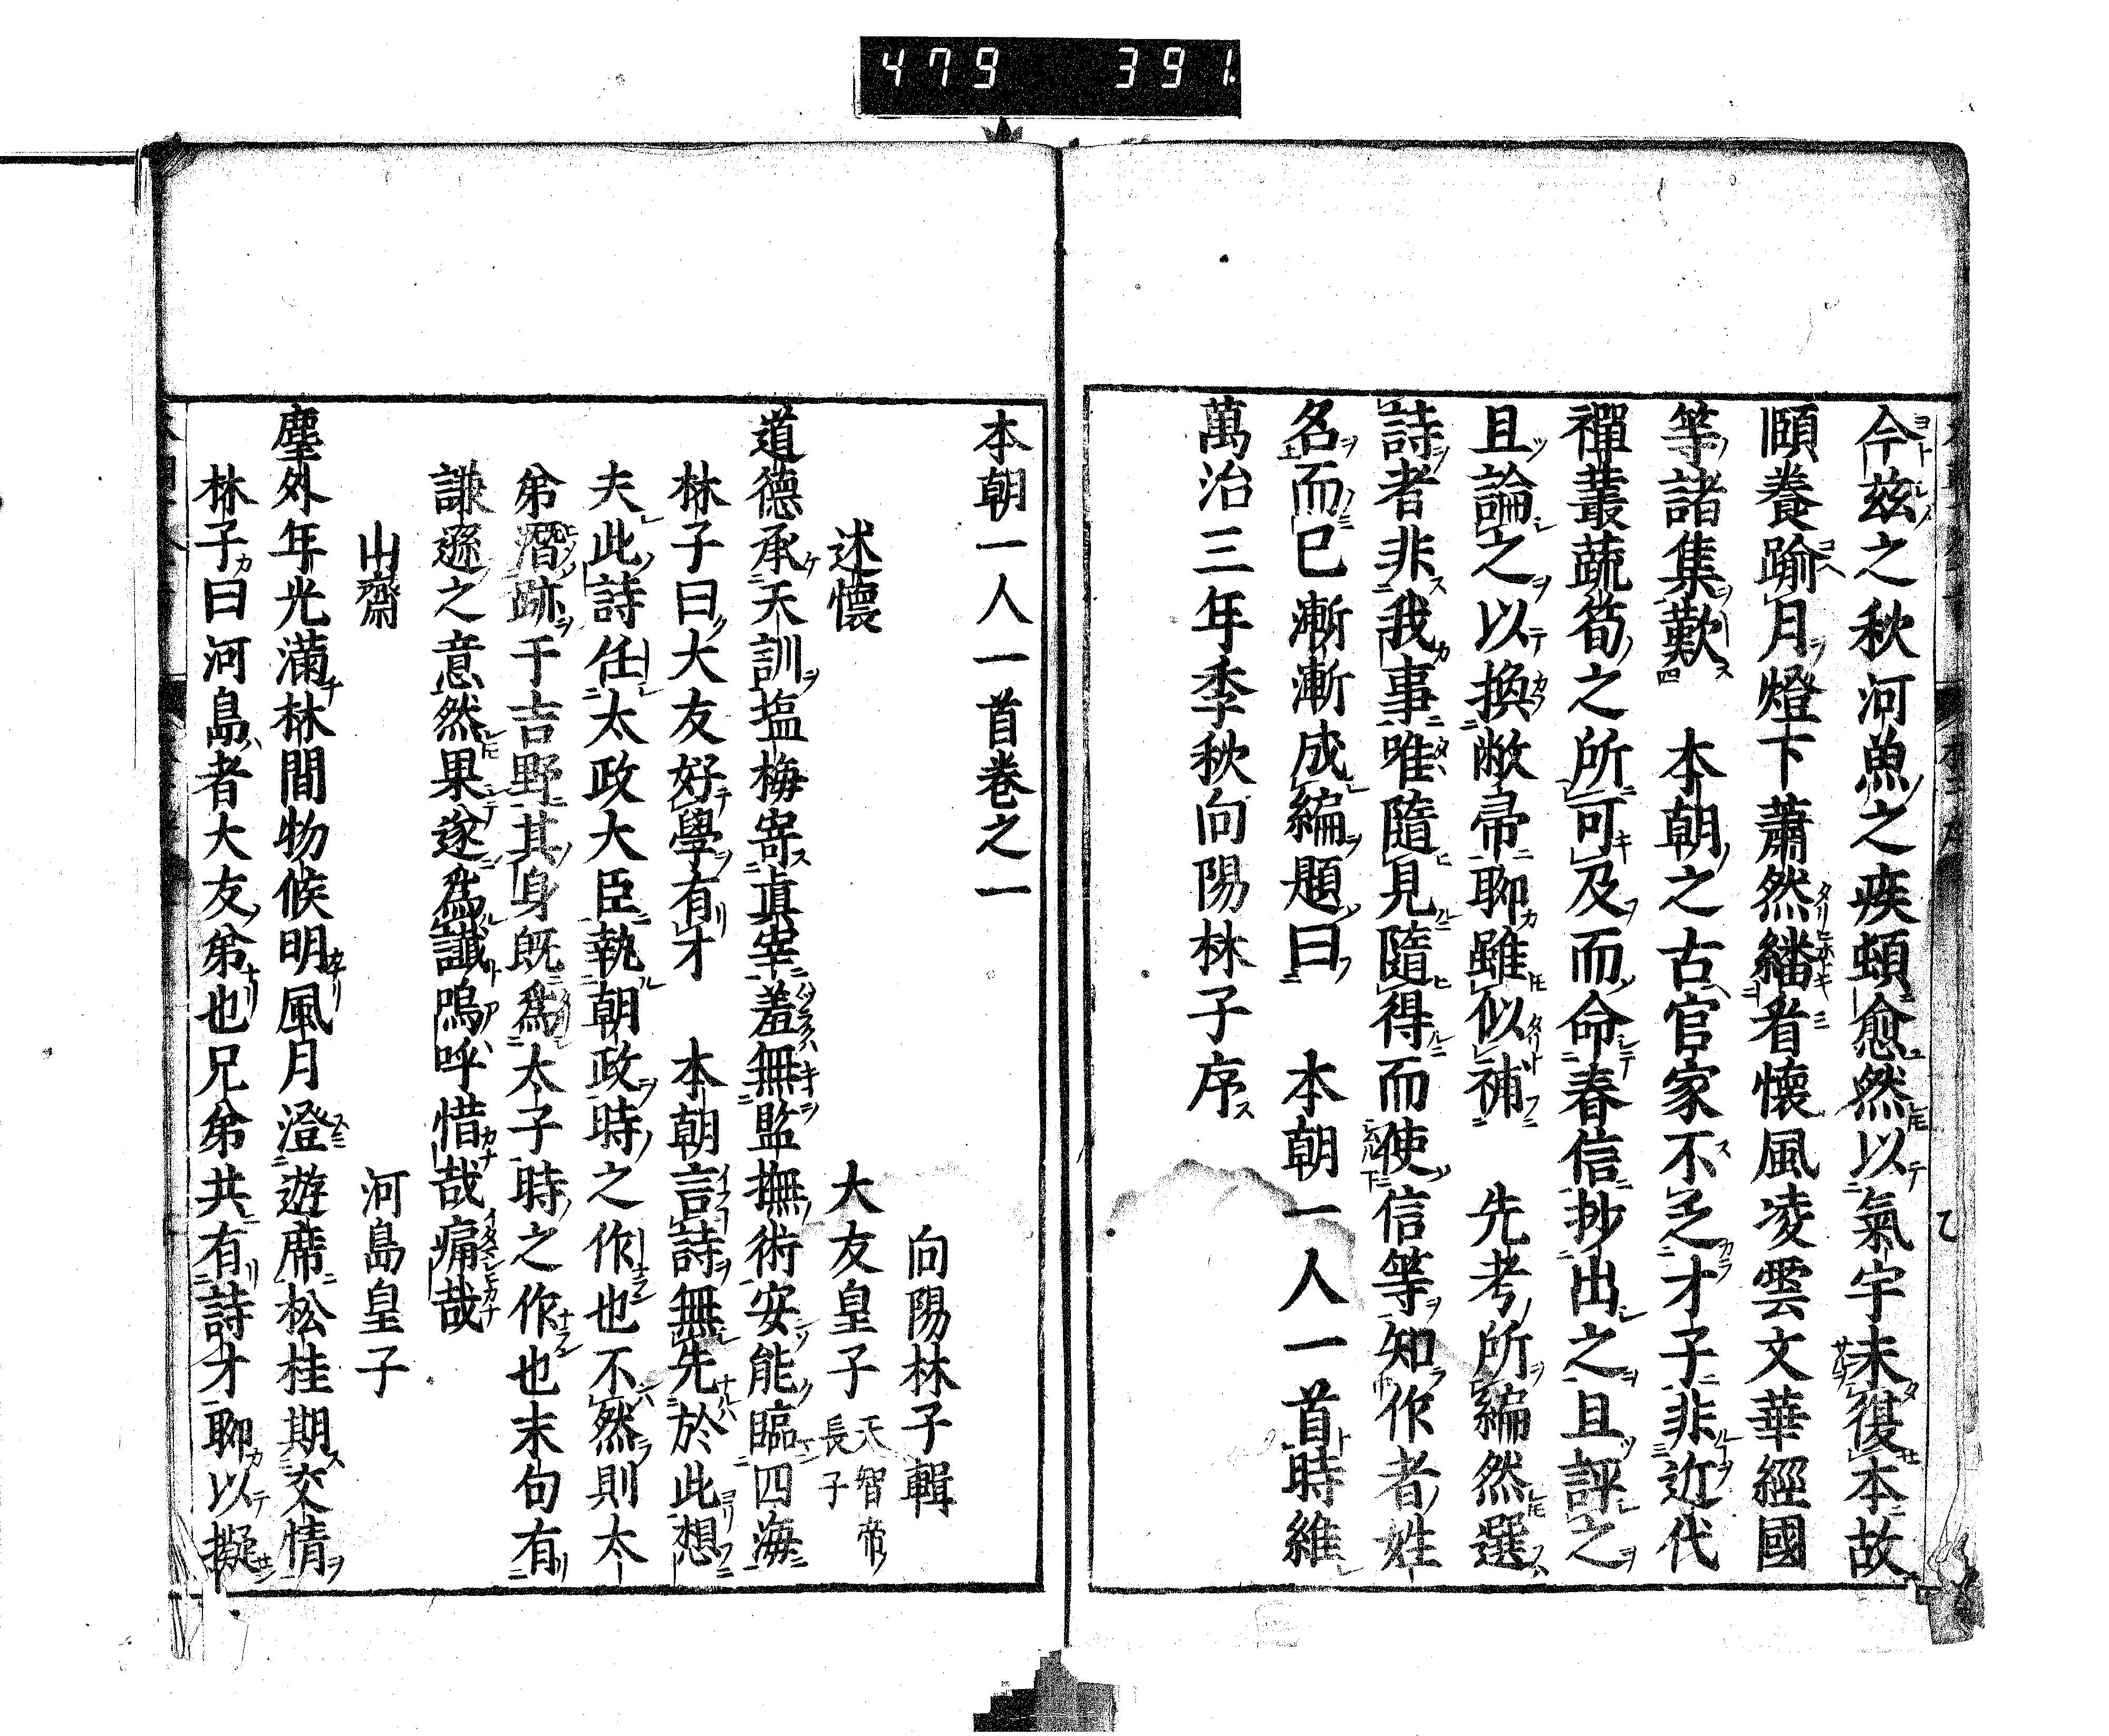 479 391
今茲之秋河魚之疾頓愈然以氣宇未復本故
頤養踰月燈下蕭然繙看懷風凌雲文華經國
等諸集歎 本朝之古官家不乏才子非近代
禪叢蔬筍之所可及而命春信抄出之且評之
且論之以換敝帚聊雖似補 先考所編然選
詩者非我事唯隨見隨得而使信等知作者姓
名而已漸漸成編題曰 本朝一人一首時維
萬治三年季秋向陽林子序
本朝一人一首卷之一
向陽林子輯
述懷 大友皇子 天智帝長子
道德承天訓塩梅寄眞宰羞無監撫術安能臨四海
林子曰大友好學有才 本朝言詩無先於此想
夫此詩任太政大臣執朝政時之作也不然則太
弟潛跡于吉野其身既爲太子時之作也末句有
謙遜之意然果遂爲讖嗚呼惜哉痛哉
山齋 河島皇子
塵外年光滿林間物候明風月澄遊席松桂期交情
林子曰河島者大友弟也兄弟共有詩才聊以擬